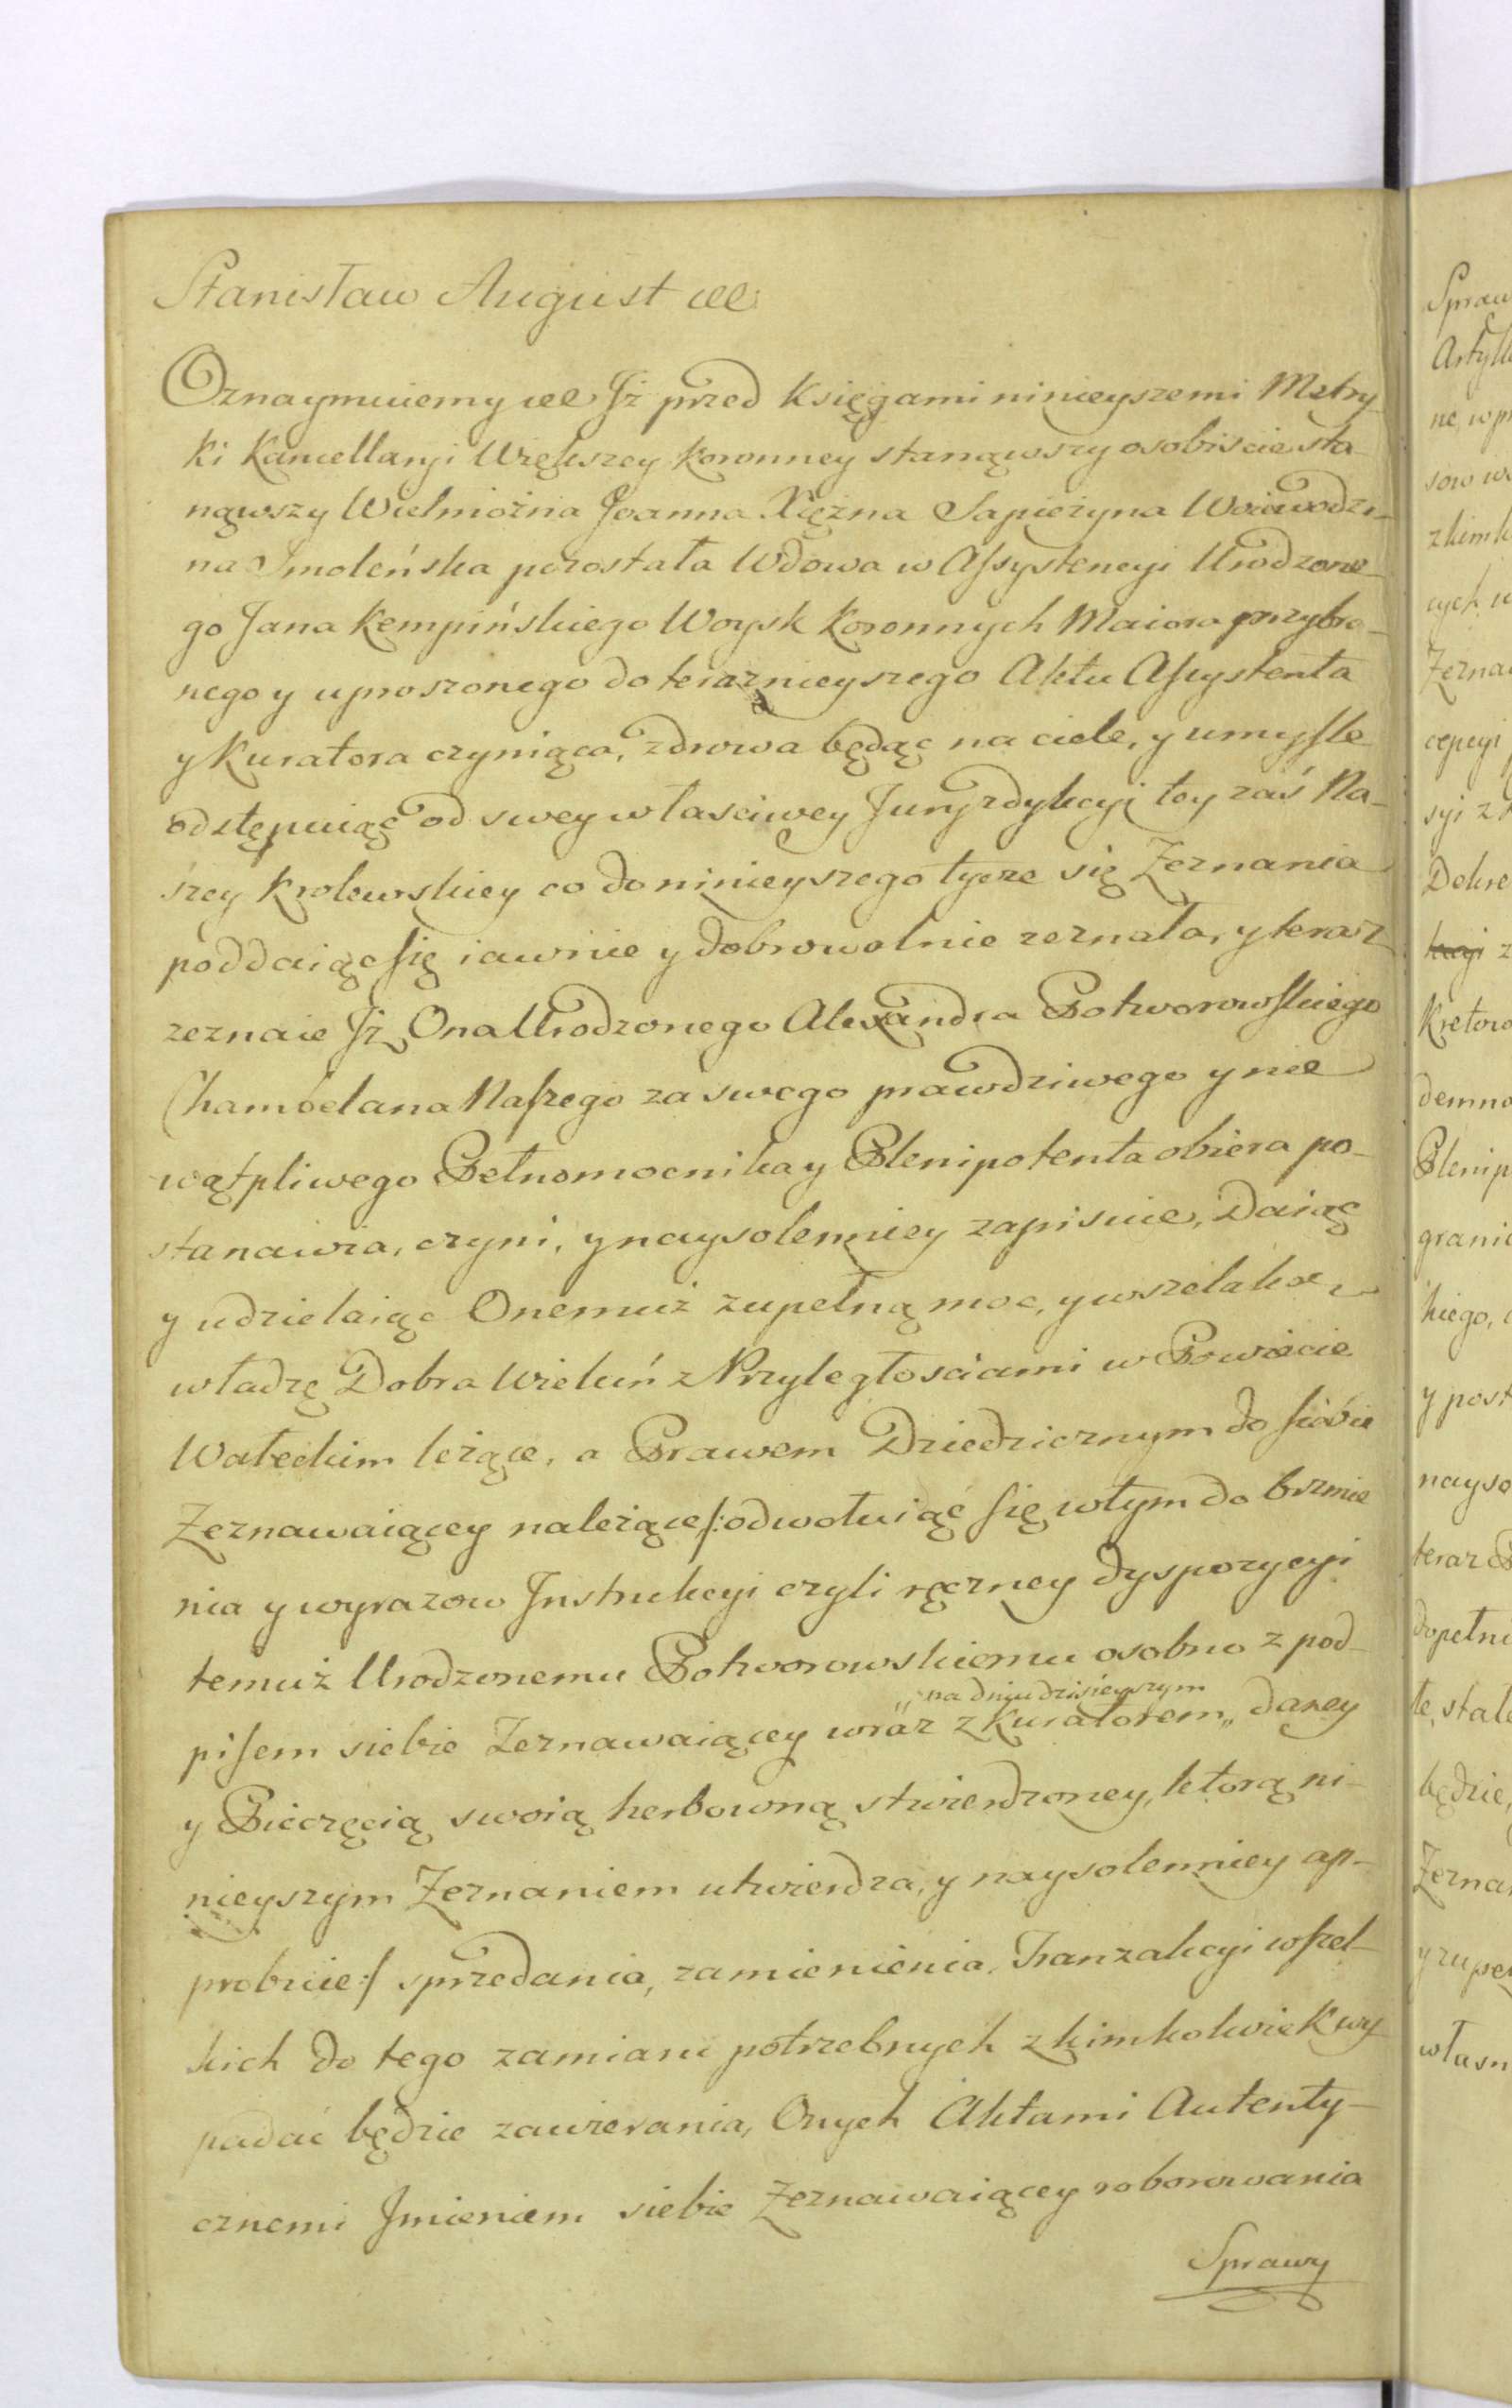 Stanisław August etc
Oznaymuiemy etc Jż przed Księgami ninieyszemi Metry
ki Kancellaryi Większey Koronney stanąwszy osobiscie sta
nąwszy Wielmożna Joanna Xiężna Sapieżyna Woiewodzi-
na Smoleńska pozostała Wdowa w Assystencyi Urodzone-
go Jana Kempińskiego Woysk Koronnych Maiora przybra-
nego y uproszonego do terazznieyszego Aktu Assystenta
y Kuratora czyniąca, zdrowa będąc na ciele, y umyśle
odstępuiąc od swey własciwey Juryzdykcyi tey zaś Na-
szey Krolewskiey co do ninieyszego tycze się Zeznania
poddaiąc się iawnie y dobrowolnie zeznała, y teraz
zeznaie Jż Ona Urodzonego Alexandra Potworowskiego
Chambelana Naszego za swego prawdziwego y nie
wątpliwego Pełnomocnika y Plenipotenta obiera po-
stanawia, czyni, y naysolenniey zapisuie, Daiąc
y udzielaiąc Onemuż zupełną moc, y wszelaką
władzę Dobra Wieluń z Przyległościami w Powiecie
Wałeckim leżące, a Prawem Dziedzicznym do siebie
Zeznawaiącey należące /: odwołuiąc się w tym do brzmie
nia y wyrazow Jnstrukcyi czyli ręczney dyspozycyi
temuż Urodzonemu Potworowskiemu osobno z pod-
„na dniu dzisieyszym
pisem siebie Zeznawaiącey wraz z Kuratorem „ daney
y Pieczęcią swoią herbowną stwierdzoney, ktorą ni-
nieyszym Zeznaniem utwierdza, y naysolenniey ap-
probuie :/ sprzedania, zamienienia, Tranzakcyi wszel-
kich do tego zamiaru potrzebnych z kimkolwiek wy
padać będzie zawierania, Onych Aktami Autenty-
cznemi Jmieniem siebie Zeznawaiącey roborowania
Sprawy
Spraw
ne, w
z kimk
Zezna
cepcyi
syi z
Dekre
z
demno
Plenip
granic
kiego,
y post
nayso
teraz
dopełni
te, stałe
będzie,
Zezna
y zupe
własn